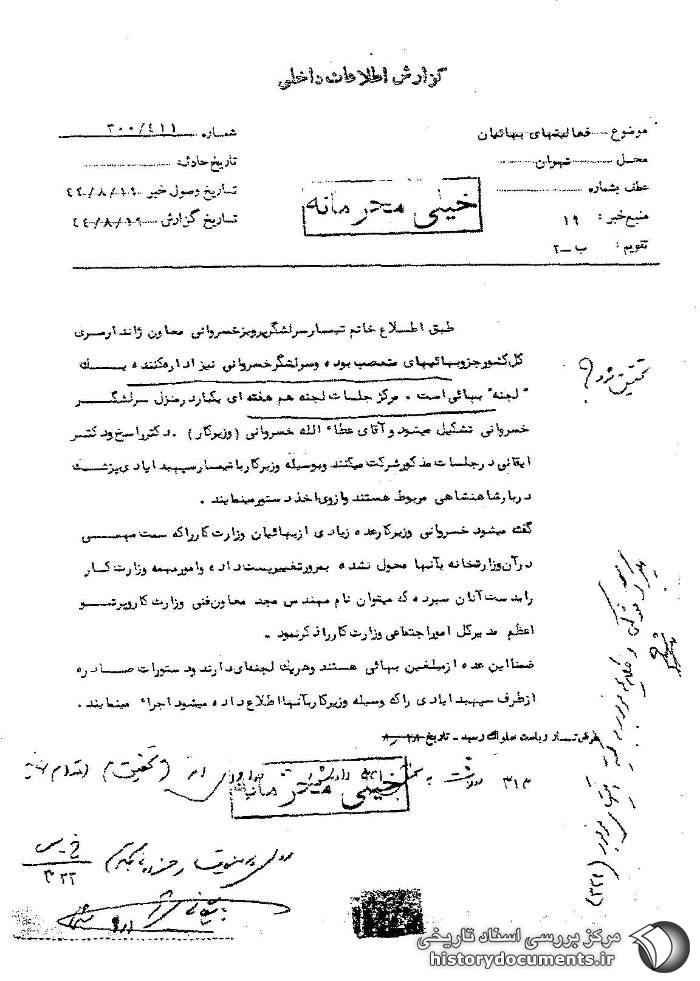 گزارش اطلاعات داخلی
موضوع فعالیتهای بهائیان
شماره ۳۰۰/۴۱۱
محل تهران
تاریخ حادثه
عطف بشماره
تاریخ وصول خبر ۴۴/۸/۱۹
منبع خبر : ۱۹
تاریخ گزارش ۴۴/۸/۱۹
تقویم : ب-۲
خیلی محرمانه
طبق اطلاع خانم تیمسار سرلشگر پرویز خسروانی معاون ژاندارمری
کل کشور جزو بهائیهای متعصب بوده و سرلشگر خسروانی نیز اداره کننده یک
"لجنه" بهائی است . مرکز جلسات لجنه هم هفته ای یکبار در منزل سرلشگر
خسروانی تشکیل میشود و آقای عطاء الله خسروانی (وزیر کار) . دکتر راسخ و دکتر
ایقانی در جلسات مذکور شرکت میکنند و بوسیله وزیر کار با تیمسار سپهبد ایادی پزشک
دربار شاهنشاهی مربوط هستند و از وی اخذ دستور مینمایند .
گفته میشود خسروانی وزیر کار عده زیادی از بهائیان وزارت کار را که سمت مهمی
در آن وزارتخانه بآنها محول نشده بمرور تغییر پست داده و امور مهمه وزارت کار
را بدست آنان سپرده که میتوان نام مهندس مجد معاون فنی وزارت کار و پرتو
اعظم مدیر کل امور اجتماعی وزارت کار را ذکر نمود .
ضمنا این عده از مبلغین بهائی هستند و هر یک لجنه ای دارند و دستورات صادره
از طرف سپهبد ایادی را که وسیله وزیر کار بآنها اطلاع داده میشود اجراء مینمایند .
تحقیق شود ؟
بعرض تیمسار ریاست ساواک رسید - تاریخ ۸/۲۸
۳۱۳
(تحقیق) اقدام
خیلی محرمانه
(۳۲۱)
۳۲۲
مرکز بررسی اسناد تاریخی
historydocuments.ir